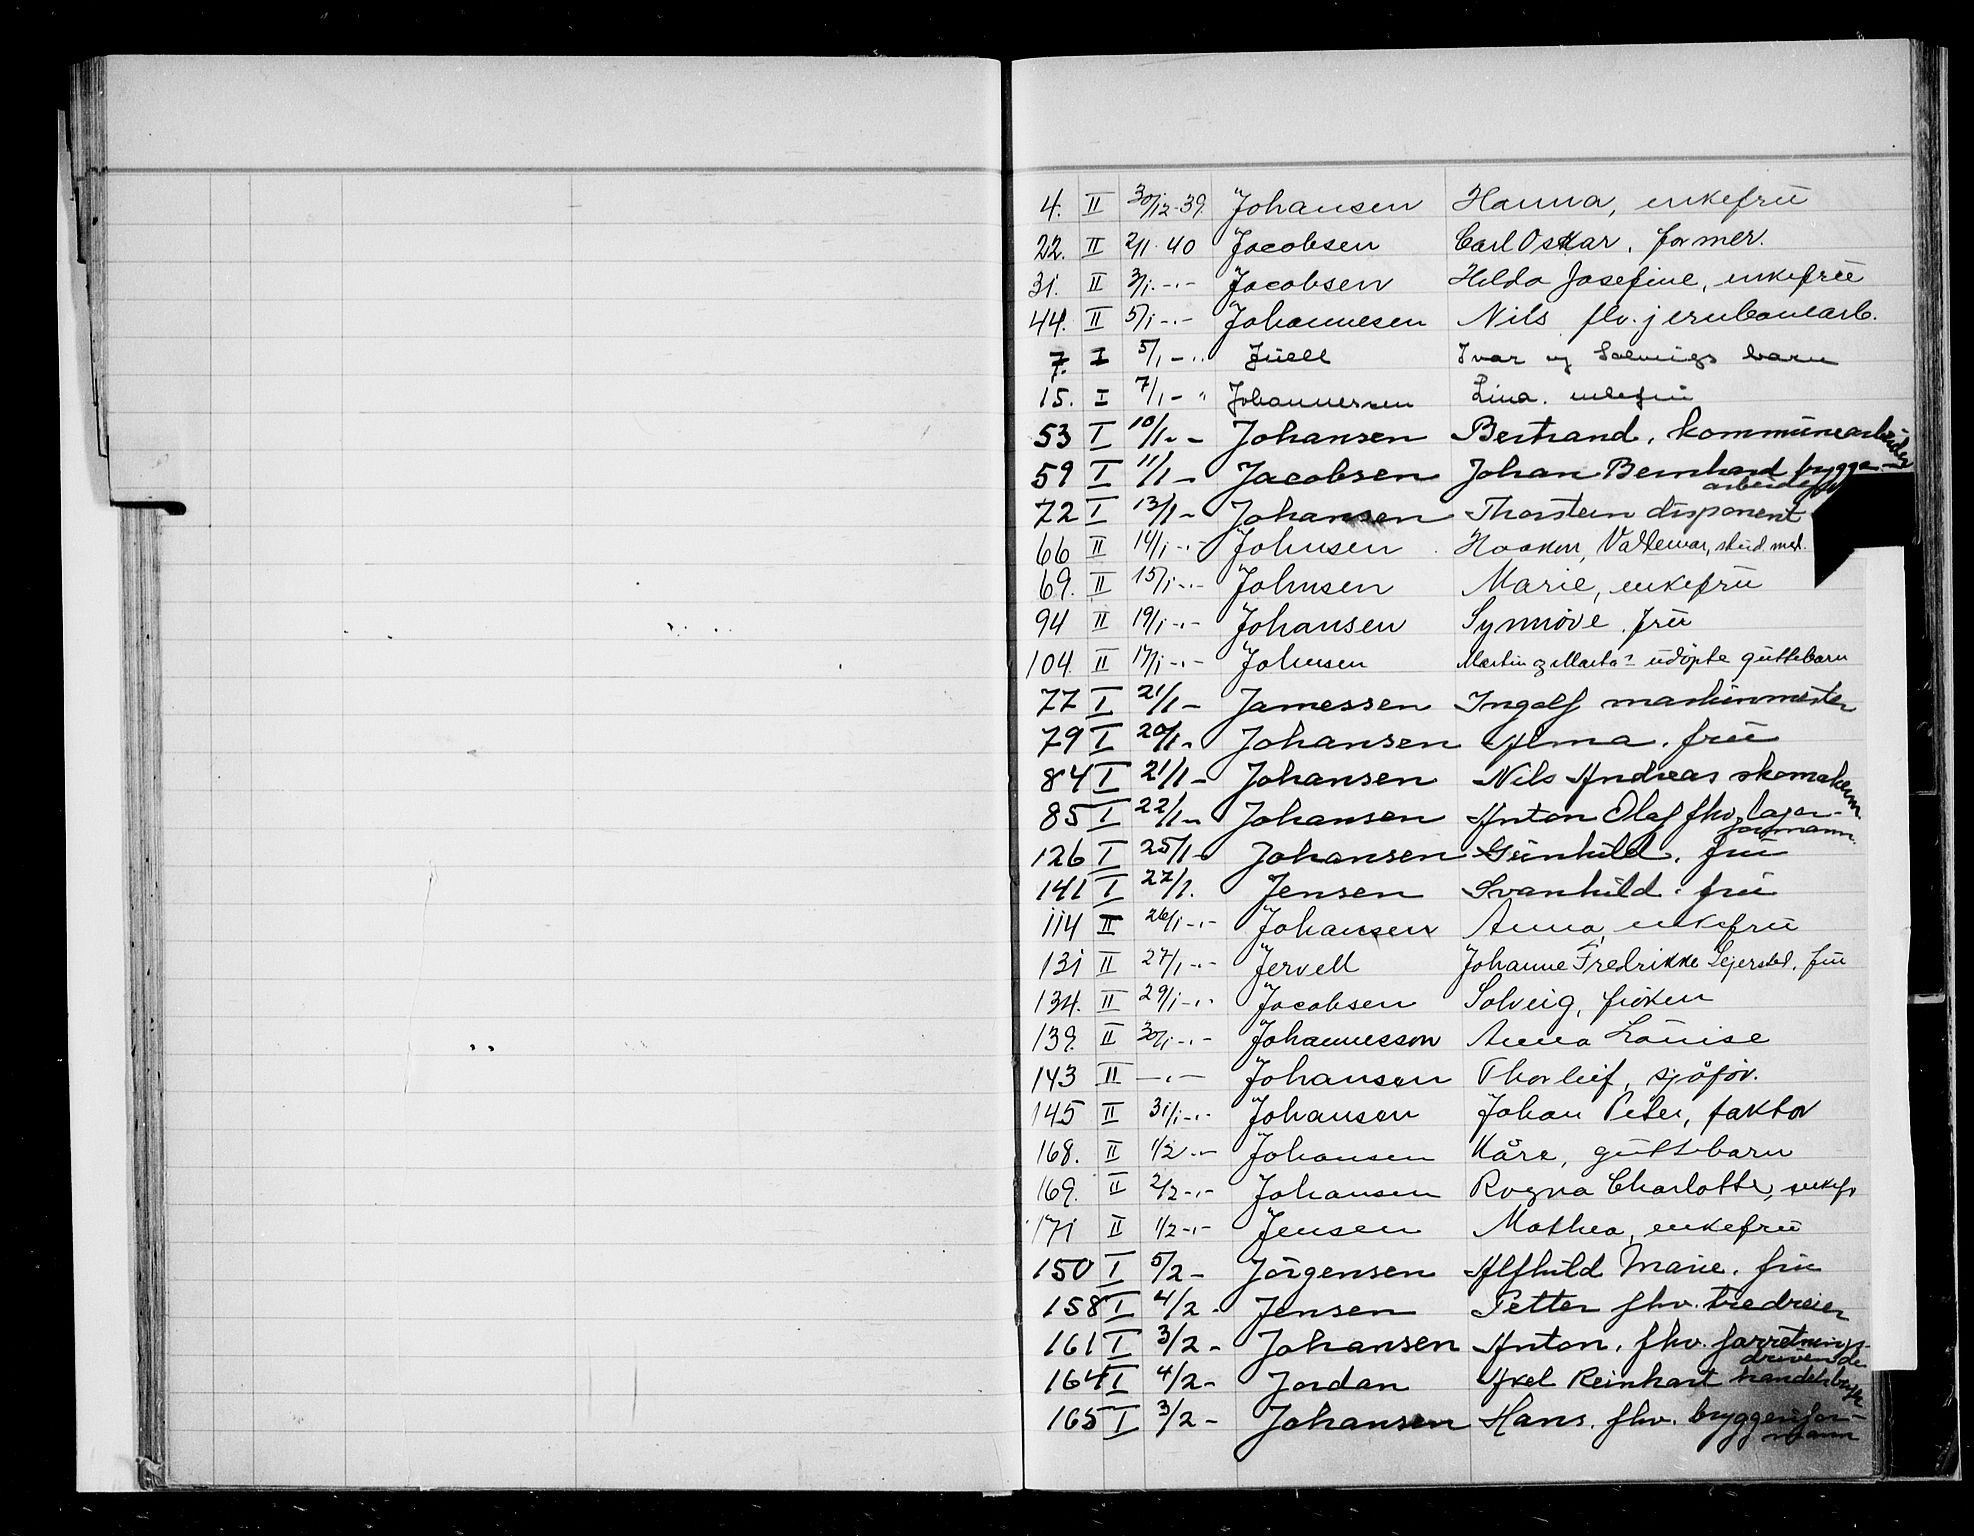 4. II 30/12-39. Johansen Hanna, enkefru
22. II 2/1-40 Jacobsen Carl Oskar, former.
31. II 3/1-"- Jacobsen Hilda Josefine, enkefru
44. II 5/1-"- Johannesen Nils flv. jernbanearb.
7. I 5/1-" Juell Ivar og Solveigs barn
15. I 7/1-" Johannessen Lina. enkefru
53 I 10/1-- Johansen Bertrand, kommunearbeider
59 I 11/1- Jacobsen Johan Bernhard brygge-
arbeider
72 I 13/1- Johansen Thorstein disponent
66 II 14/1-"- Johnsen Haakon, Valdemar, stud. med.
69. II 15/1-"- Johnsen Marie, enkefru
94 II 19/1-"- Johansen Synnöve. fru
104. II 17/1-"- Johnsen Martin og Marta's udöpte guttebarn
77 I 21/1- Jamessen Ingolf maskinmester
79 I 20/1- Johansen Alma. fru
84 I 21/1- Johansen Nils Andreas skomakerm
85 I 22/1- Johansen Anton Olaf fhv. lager-
formann.
126 I 25/1- Johansen Gunhild. fru
141 I 27/1. Jensen Svanhild. fru
114 II 26/1-"- Johansen Anna, enkefru
131 II 27/1-"- Jervell Johanne Fredrikke Sejersted, fru
134. II 29/1-"- Jacobsen Solveig, fröken
139. II 30/1-"- Johannesson Anna Louise
143 II -"- Johansen Thorleif, sjåför.
145 II 31/1-"- Johansen Johan Peter, faktor
168. II 1/2-"- Johansen Kåre, guttebarn
169. II 2/2-"- Johansen Ragna Charlotte, enkefr
171 II 1/2-"- Jensen Mathea, enkefru
150 I 5/2- Jörgensen Alfhild Marie. fru
158 I 4/2- Jensen Petter fhv. tredreier
161 I 3/2- Johansen Anton, fhv. forretnings-
drivende
164 I 4/2- Jordan Axel Reinhart handelsbest
165 I 3/2- Johansen Hans. fhv. bryggerifor-
mann